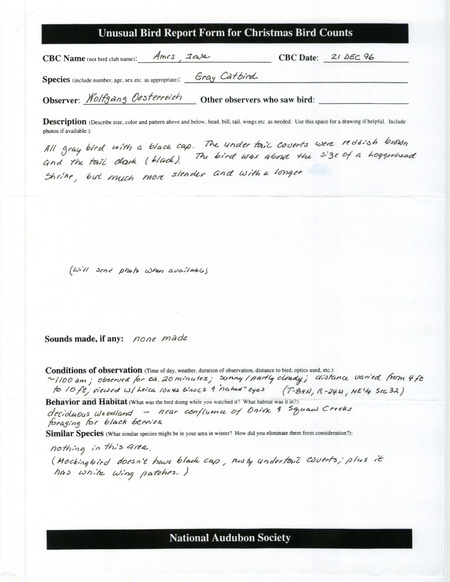 Unusual Bird Report Form for Christmas Bird Counts
CBC Name (not bird club name): Ames, Iowa CBC Date: 21 DEC 96
Species (include number, age, sex etc. as appropriate): Gray Catbird
Observer: Wolfgang Oesterreich Other observers who saw bird:
Description (Describe size, color and pattern above and below, head, bill, tail, wings etc. as needed. Use this space for a drawing if helpful. Include
photos if available.):
All gray bird with a black cap. The under tail coverts were reddish brown
and the tail dark (black). The bird was about the size of a Loggerhead
Shrike, but much more slender and with a longer
(Will send photo when available)
Sounds made, if any: none made
Conditions of observation (Time of day, weather, duration of observation, distance to bird, optics used, etc.):
~1100 am; observed for ca. 20 minutes; sunny/partly cloudy; distance varied from 4 ft
to 10 ft; viewed w/ Leica 10x42 binocs & "naked" eyes (T-84N, R-24W, NE¼ Sec 32)
Behavior and Habitat (What was the bird doing while you watched it? What habitat was it in?):
deciduous woodland – near confluence of Onion & Squaw Creeks
foraging for black berries
Similar Species (What similar species might be in your area in winter? How did you eliminate them from consideration?):
nothing in this area.
(Mockingbird doesn't have black cap, rusty undertail coverts; plus it
has white wing patches.)
National Audubon Society